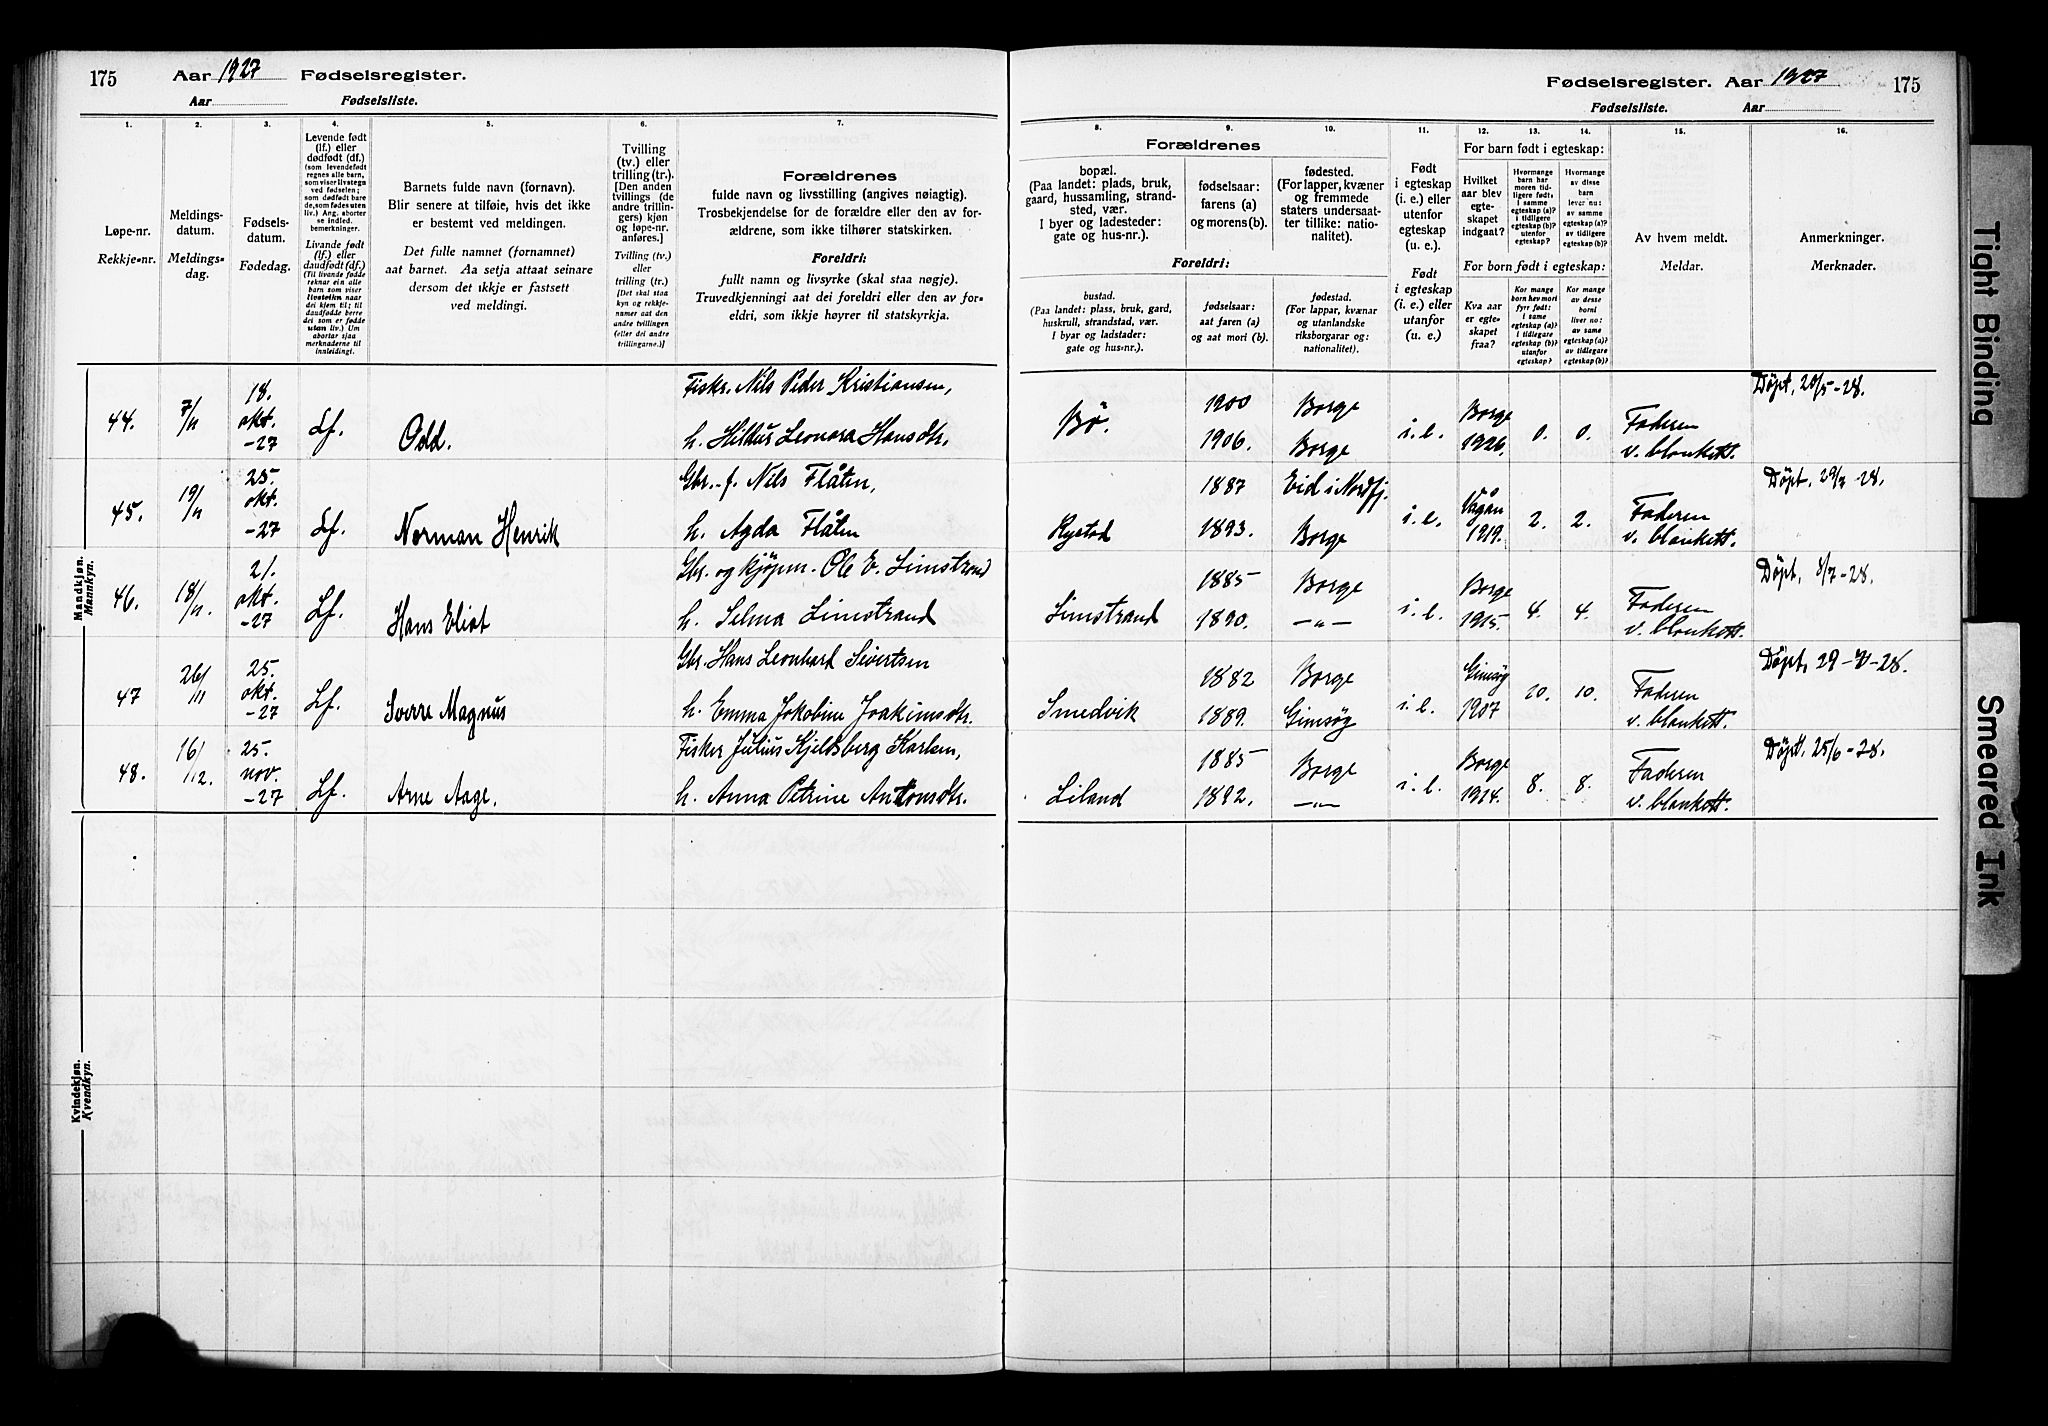 175 Aar 1927 Fødselsregister.
Aar Fødselsliste.
Fødselsregister. Aar 1927 175
Fødselsliste. Aar
1. 2. 3. 4. 5. 6. 7.
8. 9. 10. 11. 12. 13. 14. 15. 16.
Løpe-nr.
Rekkje-nr.
Meldings-
datum.
Meldings-
dag.
Fødsels-
datum.
Fødedag.
Levende født
(lf.) eller
dødfødt (df.)
(som levendefødt
regnes alle barn,
som viser livstegn
ved fødselen;
som dødfødt bare
de, som fødes uten
liv.) Ang. aborter
se indled.
bemerkninger.
Livande født
(lf.) eller
daudfødt (df.)
(Til livande fødde
reknar ein alle
born som viser
livsteikn naar
dei kjem til; til
daudfødde berre
dei som er fødde
utan liv.) Um
abortar sjaa
merknaderne til
innleidingi.
Barnets fulde navn (fornavn).
Blir senere at tilføie, hvis det ikke
er bestemt ved meldingen.
Det fulle namnet (fornamnet)
aat barnet. Aa setja attaat seinare
dersom det ikkje er fastsett
ved meldingi.
Tvilling
(tv.) eller
trilling (tr.).
[Den anden
tvillings (de
andre trillin-
gers) kjøn
og løpe-nr.
anføres.]
Tvilling (tv.)
eller
trilling (tr.)
[Det skal staa
kyn og rekkje-
numer aat den
andre tvillingen
(eller dei andre
trillingarne.)]
Forældrenes
fulde navn og livsstilling (angives nøiagtig).
Trosbekjendelse for de forældre eller den av for-
ældrene, som ikke tilhører statskirken.
Foreldri:
fullt namn og livsyrke (skal staa nøgje).
Truvedkjenningi aat dei foreldri eller den av for-
eldri, som ikkje høyrer til statskyrkja.
Forældrenes
bopæl.
(Paa landet: plads, bruk,
gaard, hussamling, strand-
sted, vær.
I byer og ladesteder:
gate og hus-nr.).
fødselsaar:
farens (a)
og morens (b).
fødested.
(For lapper, kvæner
og fremmede
staters undersaat-
ter tillike: natio-
nalitet).
Foreldri:
bustad.
(Paa landet: plass, bruk, gard,
huskrull, strandstad, vær.
I byar og ladstader:
gate og hus-nr.).
fødselsaar:
aat faren (a)
og aat mori (b).
fødestad.
(For lappar, kvænar
og utanlandske
riksborgarar og:
nationalitet).
Født
i egteskap
(i. e.) eller
utenfor
egteskap
(u. e.).
Født
i egteskap
(i. e.) eller
utanfor
(u. e.)
For barn født i egteskap:
Hvilket
aar blev
egte-
skapet
indgaat?
Hvormange
barn har
moren tid-
ligere født:
i samme
egteskap (a)?
i tidligere
egteskap (b)?
utenfor
egteskap?
Hvormange
av disse
barn
lever nu:
av samme
egteskap (a)?
av tidligere
egteskap (b)?
For born født i egteskap:
Kva aar
er egte-
skapet
fraa?
Kor mange
born hev mori
fyrr født:
I same
egteskap (a)?
I tidlegare
egteskap (b)?
utanfor
egteskap?
Kor mange
av desse
borni
liver no:
av same
egteskap (a)?
av tidlegare
egteskap (b)?
Av hvem meldt.
Meldar.
Anmerkninger.
Merknader.
Mandkjøn.
Mannkyn.
44. 7/11 18. okt. -27 Lf. Odd. Fisker. Nils Peder Kristiansen, 1900 Borge Borge Døpt, 20/5-28.
h. Hildur Leonora Hansdtr. Bø. 1906. Borge i. e. 1926. 0. 0. Faderen v. blankett.
45. 19/11 25. okt. -27 Lf. Norman Henrik Gbr.-f. Nils Flåten, 1887 Eid i Nordfj. Vågan Døpt, 29/7-28.
h. Agda Flåten Rystad 1893. Borge i. e. 1919. 2. 2. Faderen v. blankett.
46. 18/11. 21. okt. -27 Lf. Hans Eliot Gbr. og kjøpm. Ole E. Limstrand 1885 Borge Borge Døpt, 8/7-28.
h. Selma Limstrand Limstrand 1890. -"- i. e. 1915. 4. 4. Faderen v. blankett.
47 26/11 25. okt. -27 Lf. Sverre Magnus Gbr. Hans Leonhard Sivertsen 1882 Borge Gimsøy Døpt, 29-7-28.
h. Emma Jakobine Joakimsdtr. Smedvik 1889. Gimsøy i. e. 1907 10. 10. Faderen v. blankett.
48. 16/12. 25. nov. -27 Lf. Arne Aage. Fisker Julius Kjeldsberg Karlsen, 1885 Borge Borge Døpt. 25/6-28.
h. Anna Petrine Antonsdtr. Liland 1892. -"- i. e. 1914. 8. 8. Faderen v. blankett.
Kvindekjøn.
Kvendkyn.
Tight Binding
Smeared Ink